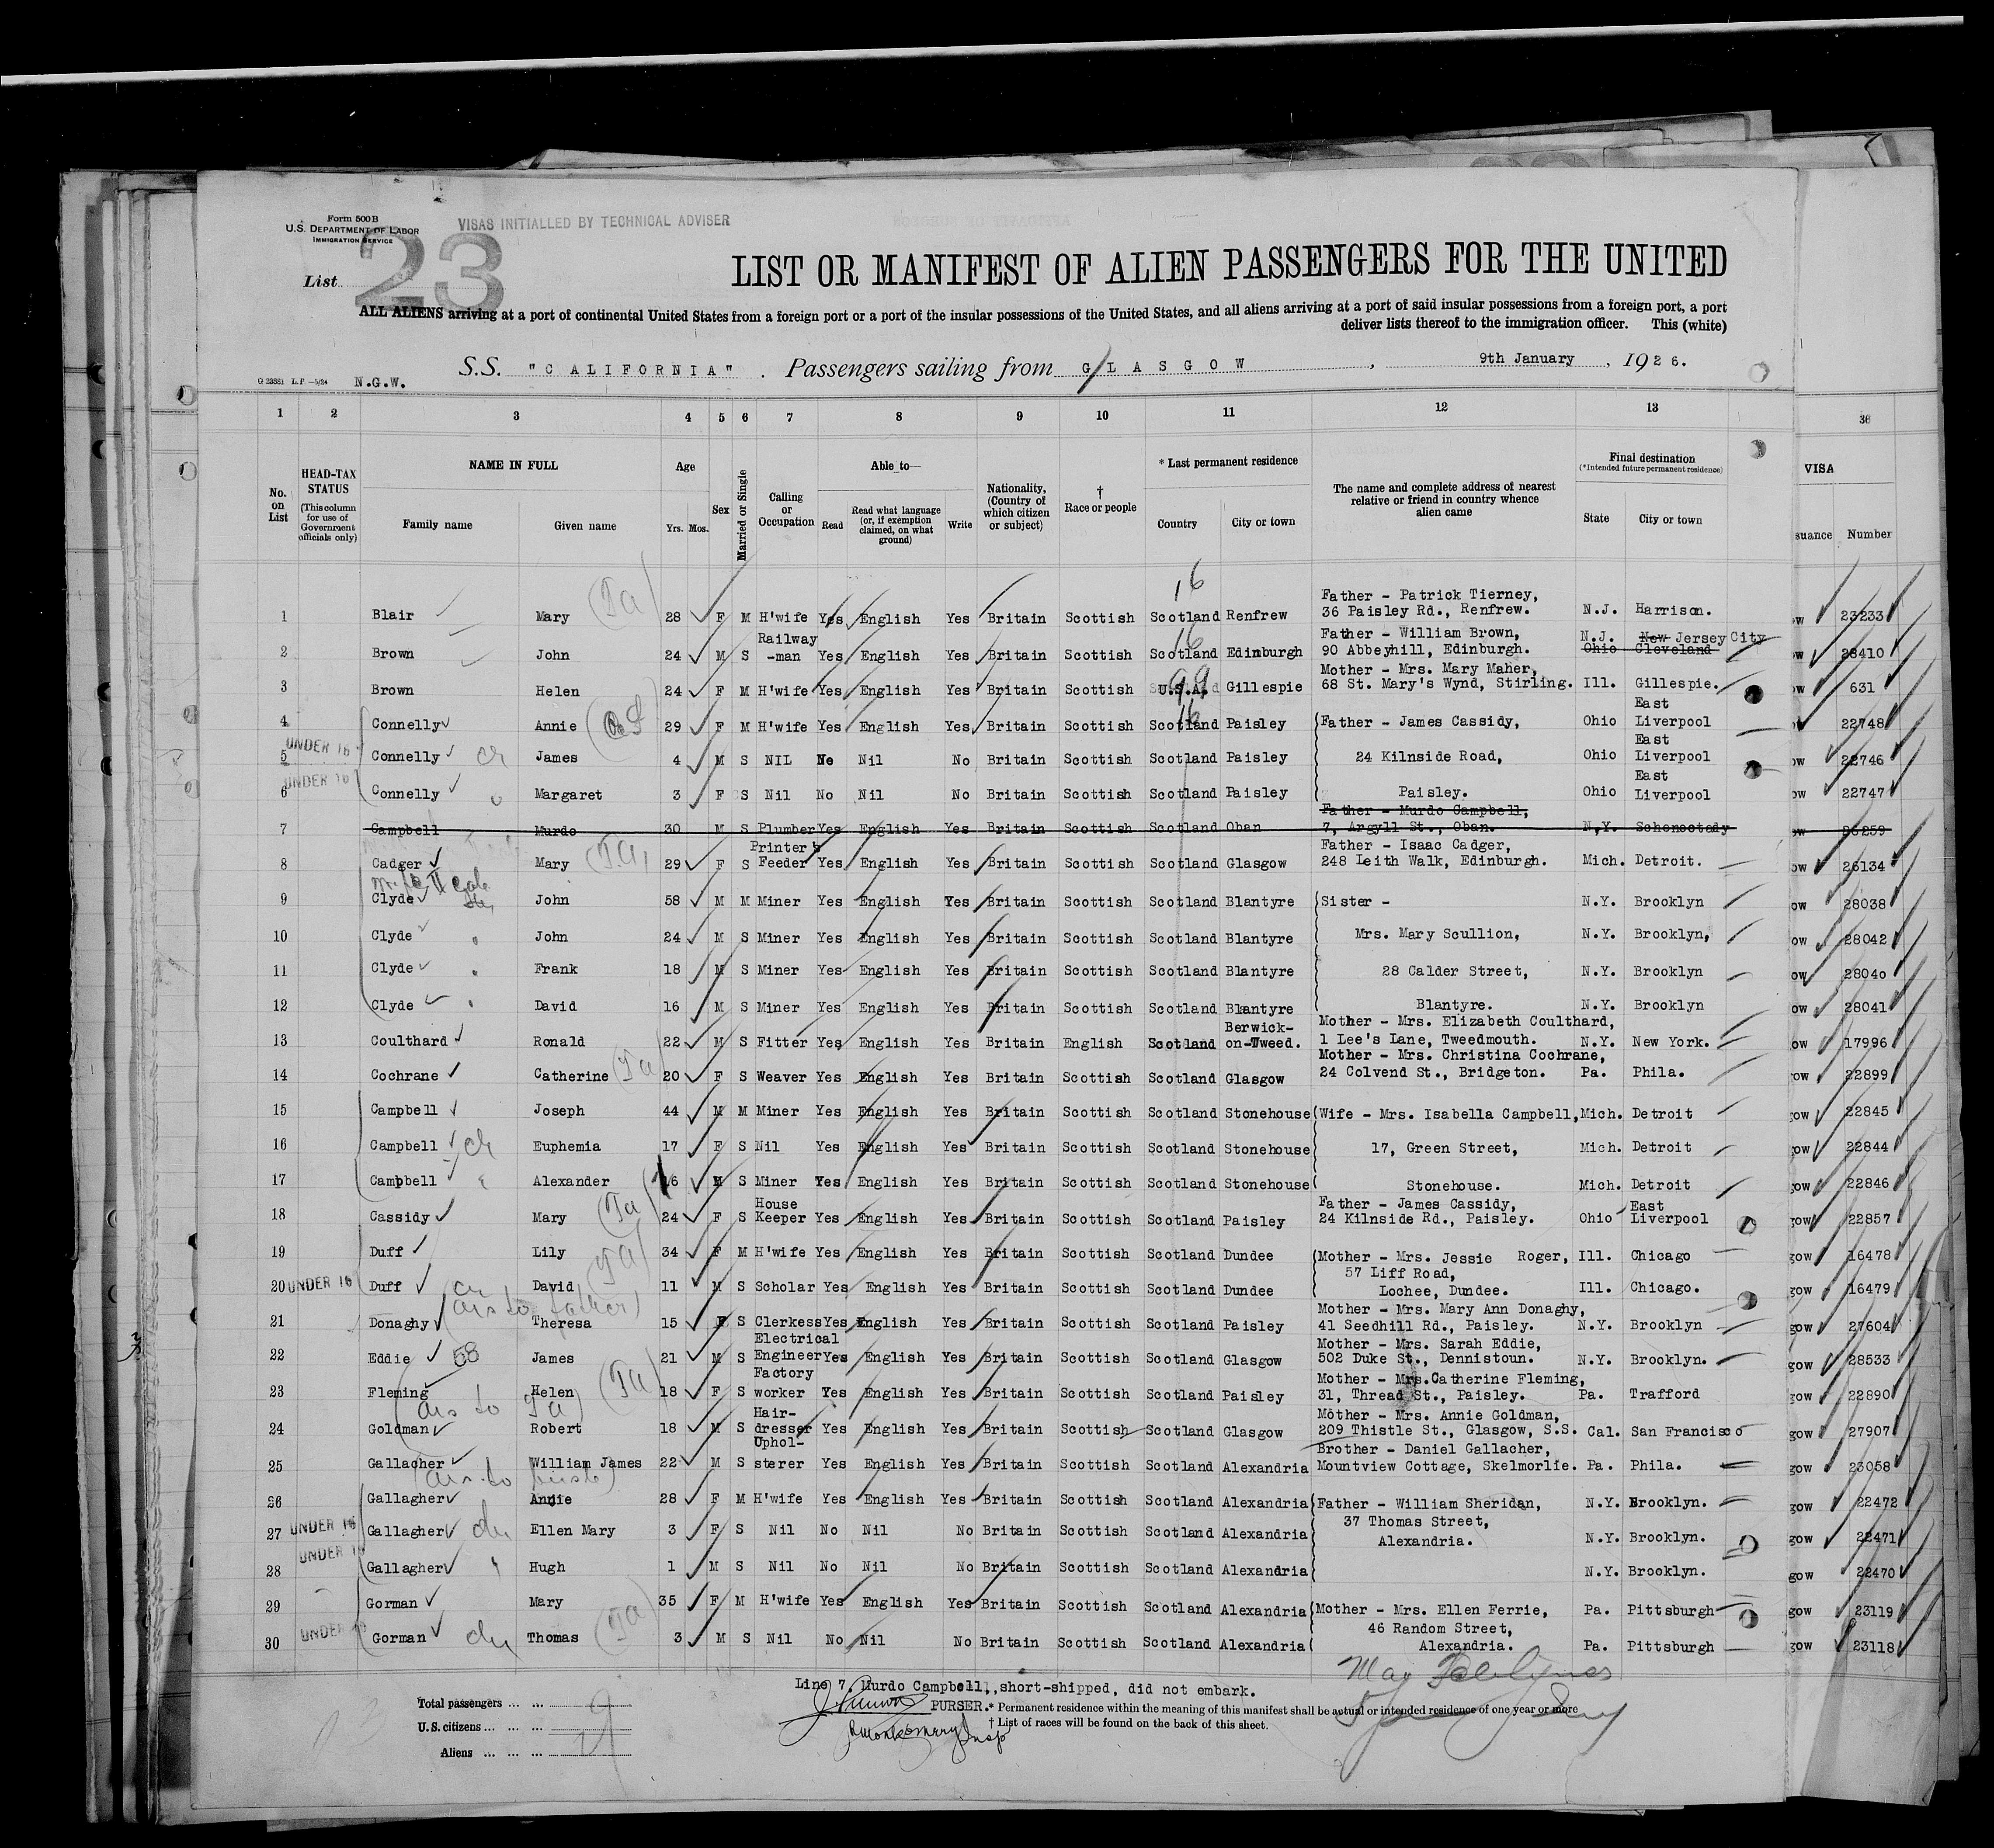 Form 500B
U.S. DEPARTMENT OF LABOR
IMMIGRATION SERVICE
VISAS INITIALLED BY TECHNICAL ADVISER
List 23
LIST OR MANIFEST OF ALIEN PASSENGERS FOR THE UNITED
ALL ALIENS arriving at a port of continental United States from a foreign port or a port of the insular possessions of the United States, and all aliens arriving at a port of said insular possessions from a foreign port, a port
deliver lists thereof to the immigration officer. This (white)
S.S. "CALIFORNIA". Passengers sailing from GLASGOW, 9th January, 1926.
G 23881 L.P.—5/24 N.G.W.
1 2 3 4 5 6 7 8 9 10 11 12 13 36
No. on List
HEAD-TAX STATUS (This column for use of Government officials only)
NAME IN FULL Family name Given name
Age Yrs. Mos.
Sex
Married or Single
Calling or Occupation
Able to— Read Read what language (or, if exemption claimed, on what ground) Write
Nationality, (Country of which citizen or subject)
† Race or people
* Last permanent residence Country City or town
The name and complete address of nearest relative or friend in country whence alien came
Final destination (*Intended future permanent residence) State City or town
VISA suance Number
16
1 Blair Mary (Ta) 28 F M H'wife Yes English Yes Britain Scottish Scotland Renfrew Father - Patrick Tierney, 36 Paisley Rd., Renfrew. N.J. Harrison. ow 23233
2 Brown John 24 M S Railway-man Yes English Yes Britain Scottish Scotland 16 Edinburgh Father - William Brown, 90 Abbeyhill, Edinburgh. N.J. New Jersey City Ohio Cleveland ow 28410
3 Brown Helen 24 F M H'wife Yes English Yes Britain Scottish U.S.A. 99 Gillespie Mother - Mrs. Mary Maher, 68 St. Mary's Wynd, Stirling. Ill. Gillespie. ow 631
4 Connelly Annie 29 F M H'wife Yes English Yes Britain Scottish Scotland 16 Paisley Father - James Cassidy, Ohio East Liverpool ow 22748
UNDER 16 5 Connelly ch James 4 M S NIL No Nil No Britain Scottish Scotland Paisley 24 Kilnside Road, Ohio East Liverpool ow 22746
UNDER 16 6 Connelly Margaret 3 F S Nil No Nil No Britain Scottish Scotland Paisley Paisley. Ohio East Liverpool ow 22747
7 Campbell Murdo 30 M S Plumber Yes English Yes Britain Scottish Scotland Oban Father - Murdo Campbell, 7, Argyll St., Oban. N.Y. Schenectady ow 26259
8 Cadger Mary (Ta) 29 F S Printer's Feeder Yes English Yes Britain Scottish Scotland Glasgow Father - Isaac Cadger, 248 Leith Walk, Edinburgh. Mich. Detroit. ow 26134
9 Clyde John 58 M M Miner Yes English Yes Britain Scottish Scotland Blantyre Sister - N.Y. Brooklyn ow 28038
10 Clyde " John 24 M S Miner Yes English Yes Britain Scottish Scotland Blantyre Mrs. Mary Scullion, N.Y. Brooklyn, ow 28042
11 Clyde " Frank 18 M S Miner Yes English Yes Britain Scottish Scotland Blantyre 28 Calder Street, N.Y. Brooklyn ow 28040
12 Clyde " David 16 M S Miner Yes English Yes Britain Scottish Scotland Blantyre Blantyre. N.Y. Brooklyn ow 28041
13 Coulthard Ronald 22 M S Fitter Yes English Yes Britain English Scotland Berwick-on-Tweed. Mother - Mrs. Elizabeth Coulthard, 1 Lee's Lane, Tweedmouth. N.Y. New York. ow 17996
14 Cochrane Catherine (Ta) 20 F S Weaver Yes English Yes Britain Scottish Scotland Glasgow Mother - Mrs. Christina Cochrane, 24 Colvend St., Bridgeton. Pa. Phila. ow 22899
15 Campbell Joseph 44 M M Miner Yes English Yes Britain Scottish Scotland Stonehouse Wife - Mrs. Isabella Campbell, Mich. Detroit gow 22845
16 Campbell ch Euphemia 17 F S Nil Yes English Yes Britain Scottish Scotland Stonehouse 17, Green Street, Mich. Detroit gow 22844
17 Campbell " Alexander 16 M S Miner Yes English Yes Britain Scottish Scotland Stonehouse Stonehouse. Mich. Detroit gow 22846
18 Cassidy Mary (Ta) 24 F S House Keeper Yes English Yes Britain Scottish Scotland Paisley Father - James Cassidy, 24 Kilnside Rd., Paisley. Ohio East Liverpool gow 22857
19 Duff Lily (Ta) 34 F M H'wife Yes English Yes Britain Scottish Scotland Dundee Mother - Mrs. Jessie Roger, Ill. Chicago gow 16478
20 UNDER 16 Duff ch David 11 M S Scholar Yes English Yes Britain Scottish Scotland Dundee 57 Liff Road, Lochee, Dundee. Ill. Chicago. gow 16479
(dis to father)
21 Donaghy Theresa 15 F S Clerkess Yes English Yes Britain Scottish Scotland Paisley Mother - Mrs. Mary Ann Donaghy, 41 Seedhill Rd., Paisley. N.Y. Brooklyn gow 27604
22 Eddie 58 James 21 M S Electrical Engineer Yes English Yes Britain Scottish Scotland Glasgow Mother - Mrs. Sarah Eddie, 502 Duke St., Dennistoun. N.Y. Brooklyn. gow 28533
23 Fleming Helen (Ta) 18 F S Factory worker Yes English Yes Britain Scottish Scotland Paisley Mother - Mrs.Catherine Fleming, 31, Thread St., Paisley. Pa. Trafford gow 22890
(dis to Ta)
24 Goldman Robert 18 M S Hair-dresser Yes English Yes Britain Scottish Scotland Glasgow Mother - Mrs. Annie Goldman, 209 Thistle St., Glasgow, S.S. Cal. San Francisco gow 27907
25 Gallacher William James 22 M S Uphol-sterer Yes English Yes Britain Scottish Scotland Alexandria Brother - Daniel Gallacher, Mountview Cottage, Skelmorlie. Pa. Phila. gow 23058
26 Gallagher Annie 28 F M H'wife Yes English Yes Britain Scottish Scotland Alexandria Father - William Sheridan, N.Y. Brooklyn. gow 22472
27 UNDER 16 Gallagher ch Ellen Mary 3 F S Nil No Nil No Britain Scottish Scotland Alexandria 37 Thomas Street, Alexandria. N.Y. Brooklyn. gow 22471
28 UNDER 16 Gallagher " Hugh 1 M S Nil No Nil No Britain Scottish Scotland Alexandria N.Y. Brooklyn. gow 22470
29 Gorman Mary 35 F M H'wife Yes English Yes Britain Scottish Scotland Alexandria Mother - Mrs. Ellen Ferrie, Pa. Pittsburgh gow 23119
30 UNDER 16 Gorman ch Thomas (Ta) 3 M S Nil No Nil No Britain Scottish Scotland Alexandria 46 Random Street, Alexandria. Pa. Pittsburgh 23118
Line 7, Murdo Campbell, short-shipped, did not embark.
PURSER.
Total passengers ... ...
U.S. citizens ... ... ...
Aliens ... ... ...
* Permanent residence within the meaning of this manifest shall be actual or intended residence of one year or more
† List of races will be found on the back of this sheet.